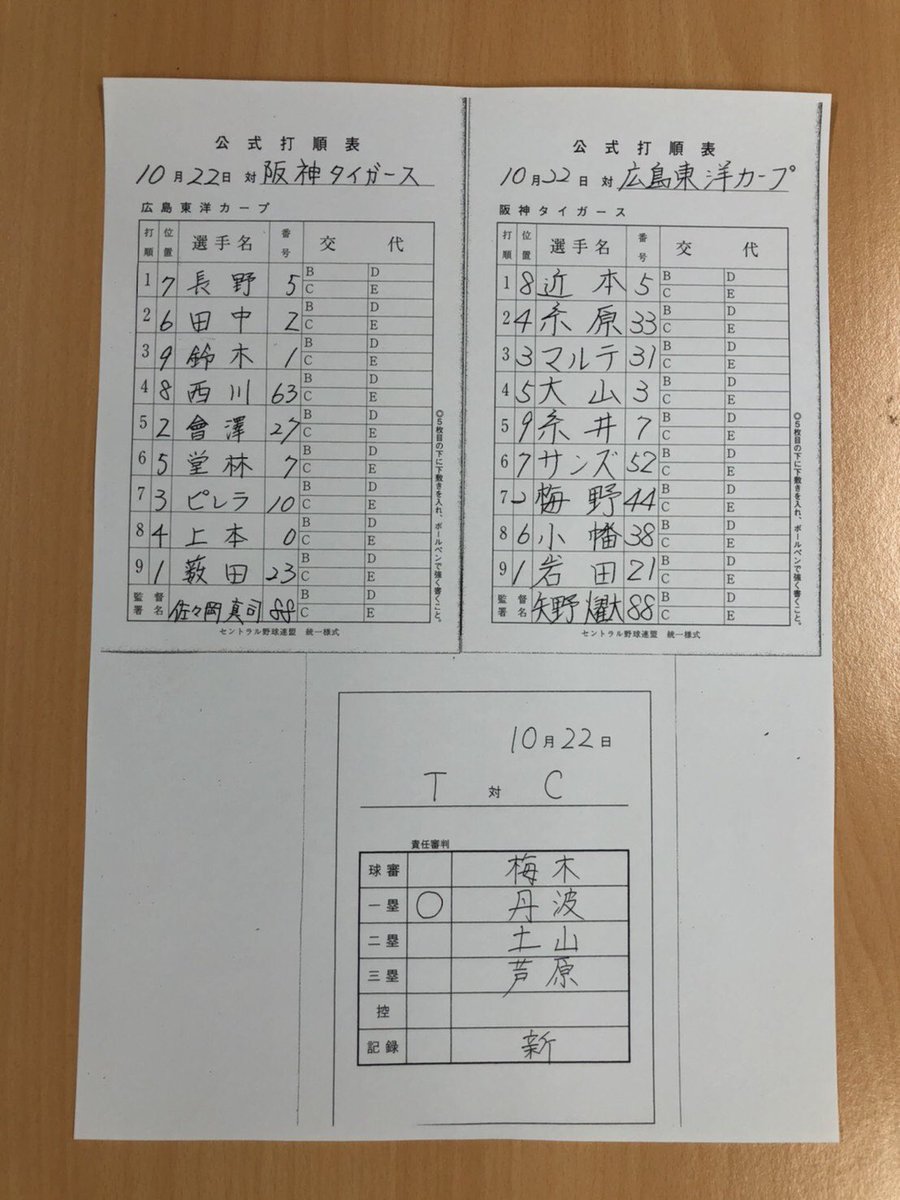 公式打順表
10月22日 対 阪神タイガース
広島東洋カープ
打順 位置 選手名 番号 交代
1 7 長野 5 B D C E
2 6 田中 2 B D C E
3 9 鈴木 1 B D C E
4 8 西川 63 B D C E
5 2 會澤 27 B D C E
6 5 堂林 7 B D C E
7 3 ピレラ 10 B D C E
8 4 上本 0 B D C E
9 1 薮田 23 B D C E
監督署名 佐々岡真司 88 B D C E
セントラル野球連盟 統一様式
◎5枚目の下に下敷きを入れ、ボールペンで強く書くこと。
公式打順表
10月22日 対 広島東洋カープ
阪神タイガース
打順 位置 選手名 番号 交代
1 8 近本 5 B D C E
2 4 糸原 33 B D C E
3 3 マルテ 31 B D C E
4 5 大山 3 B D C E
5 9 糸井 7 B D C E
6 7 サンズ 52 B D C E
7 2 梅野 44 B D C E
8 6 小幡 38 B D C E
9 1 岩田 21 B D C E
監督署名 矢野燿大 88 B D C E
セントラル野球連盟 統一様式
◎5枚目の下に下敷きを入れ、ボールペンで強く書くこと。
10月22日
T 対 C
責任審判
球審 梅木
一塁 ○ 丹波
二塁 土山
三塁 芦原
控
記録 新